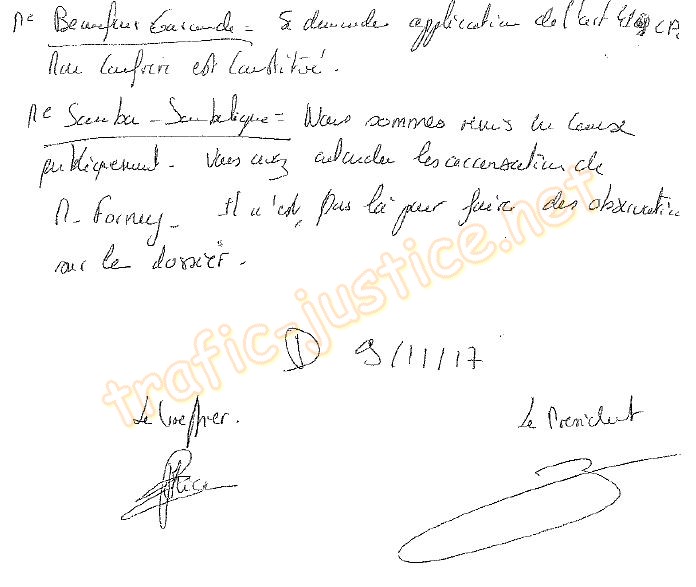 Me Je demande application de l'art CP
Mon confrère est constitué.
Me Samba - Sambeligue = Nous sommes remis en cause
publiquement. Vous avez entendu les accusations de
M. Forney. Il n'est pas là pour faire des observations
sur le dossier.
D 9/11/17
Le Greffier. Le Président
trafic-justice.net